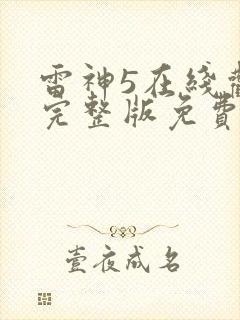 雷神5在綫
完整版免費
壹夜成名